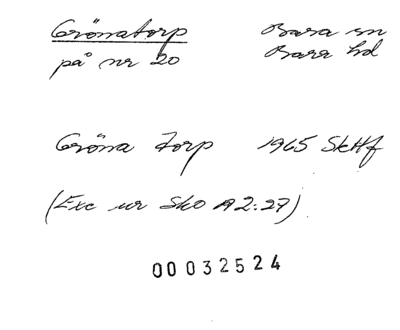 Grönatorp Bara sn
på nr 20 Bara hd
Gröna Torp 1965 SkHf
(Exc ur SkO A2:27)
00032524